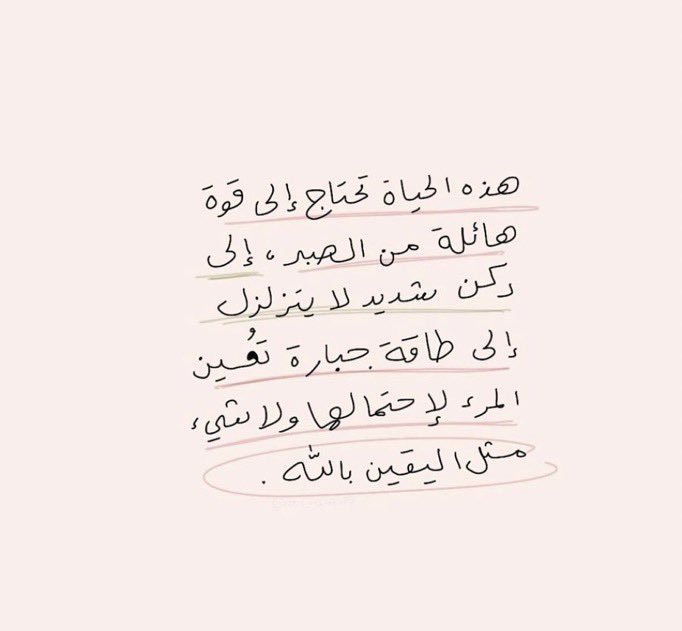 هذه الحياة تحتاج إلى قوة
هائلة من الصبر، إلى
ركن شديد لا يتزلزل
إلى طاقة جبارة تُعين
المرء لإحتمالها ولا شيء
مثل اليقين بالله.